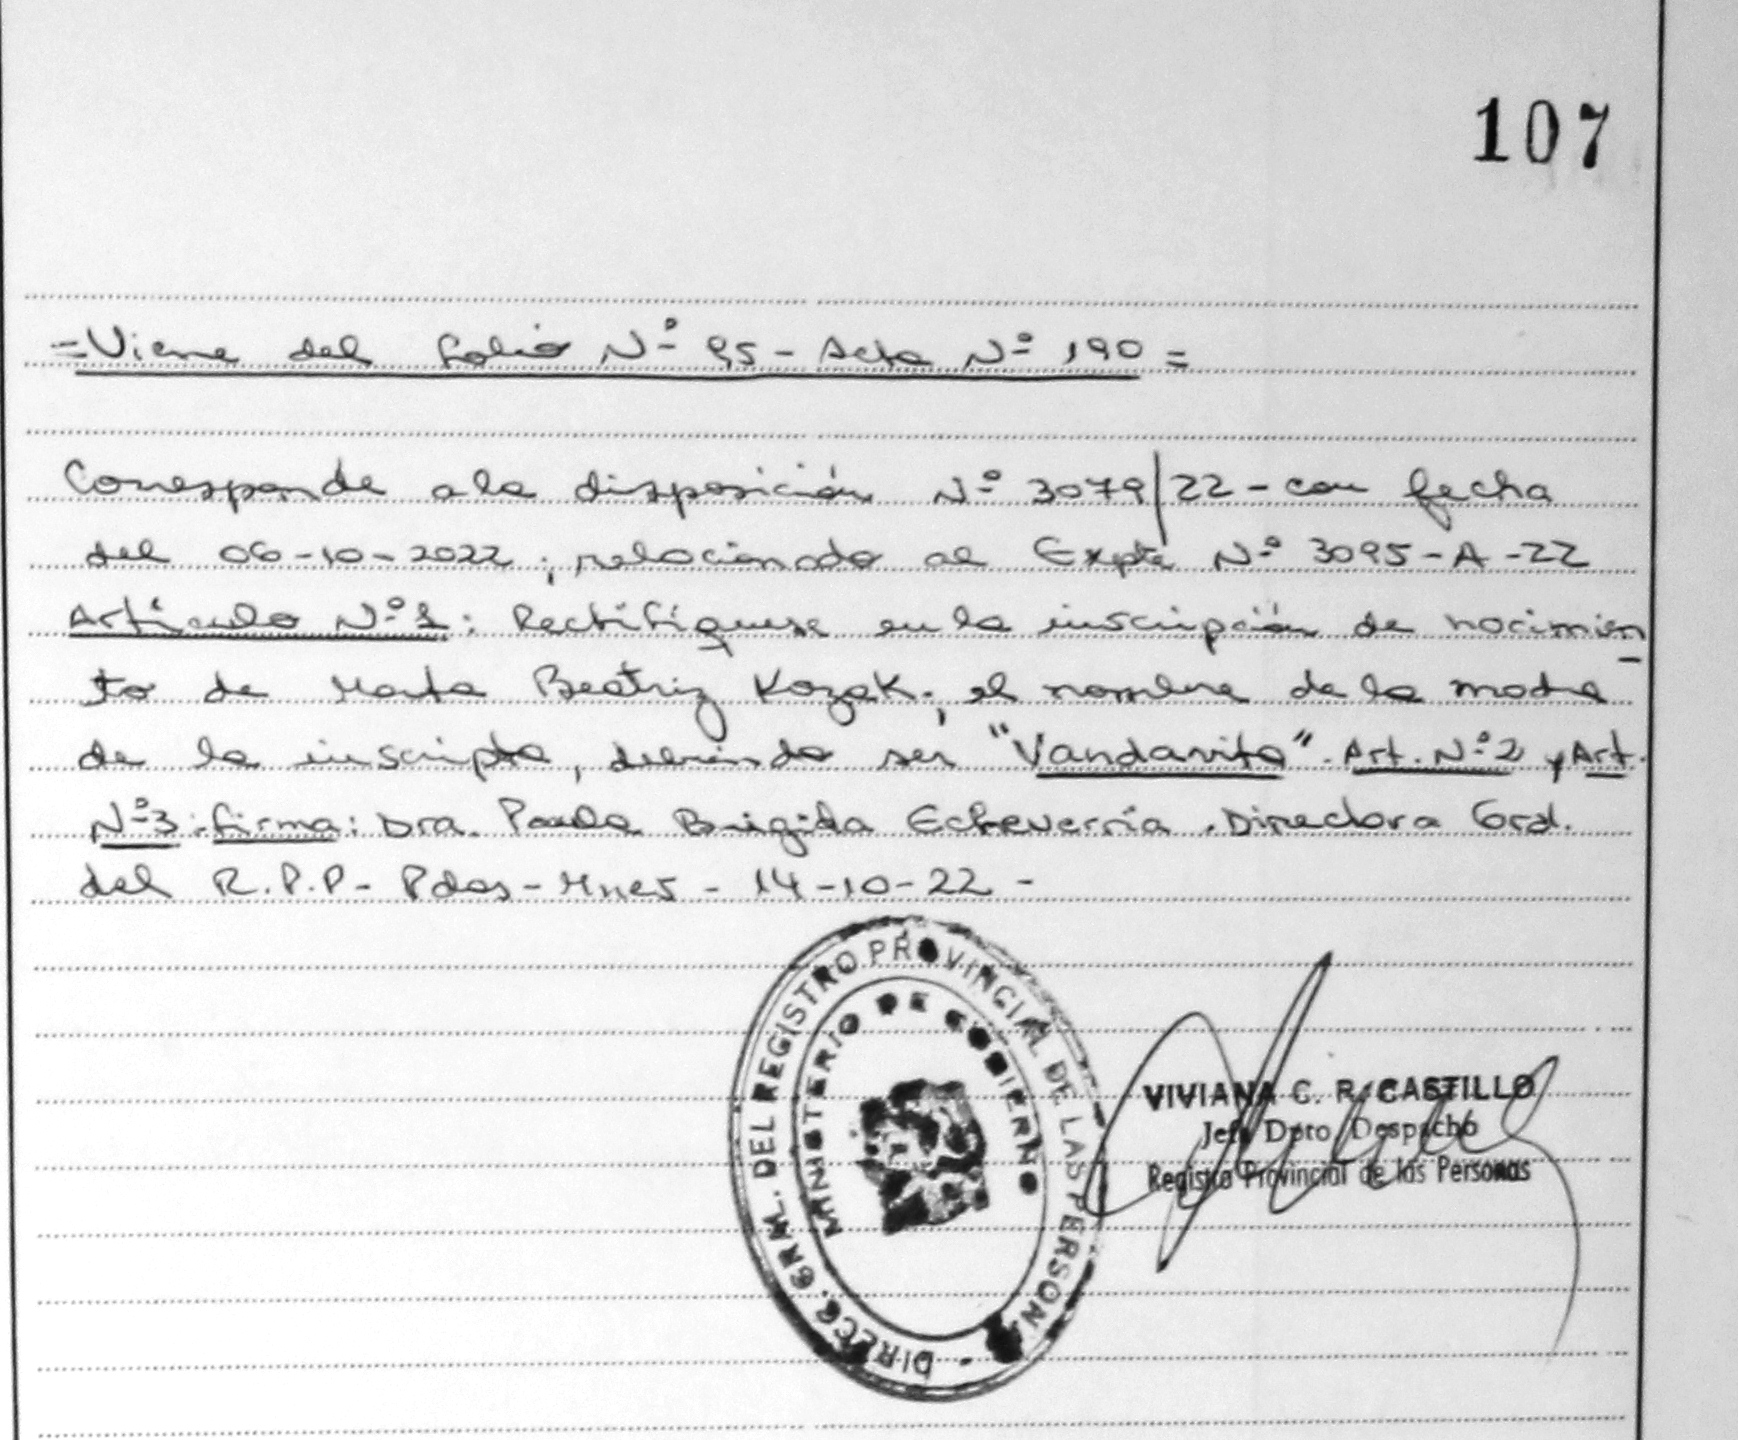 107
=Viene del folio Nº 95 - Acta Nº 190=
Corresponde a la disposición Nº 3079/22 - con fecha
del 06-10-2022, relacionado al Expte Nº 3095-A-22
Artículo Nº 1: Rectifíquese en la inscripción de nacimien-
to de Marta Beatriz Kozak; el nombre de la madre
de la inscripta, debiendo ser "Vandavita". Art. Nº 2 y Art.
Nº 3. firma: Dra. Paula Brigida Echeverría. Directora Gral.
del R.P.P- Pdas - Mnes - 14-10-22 -
DIRECC. GRAL. DEL REGISTRO PROVINCIAL DE LAS PERSON.
MINISTERIO DE GOBIERNO
VIVIANA C. R. CASTILLO
Jefe Dpto. Despacho
Registro Provincial de las Personas